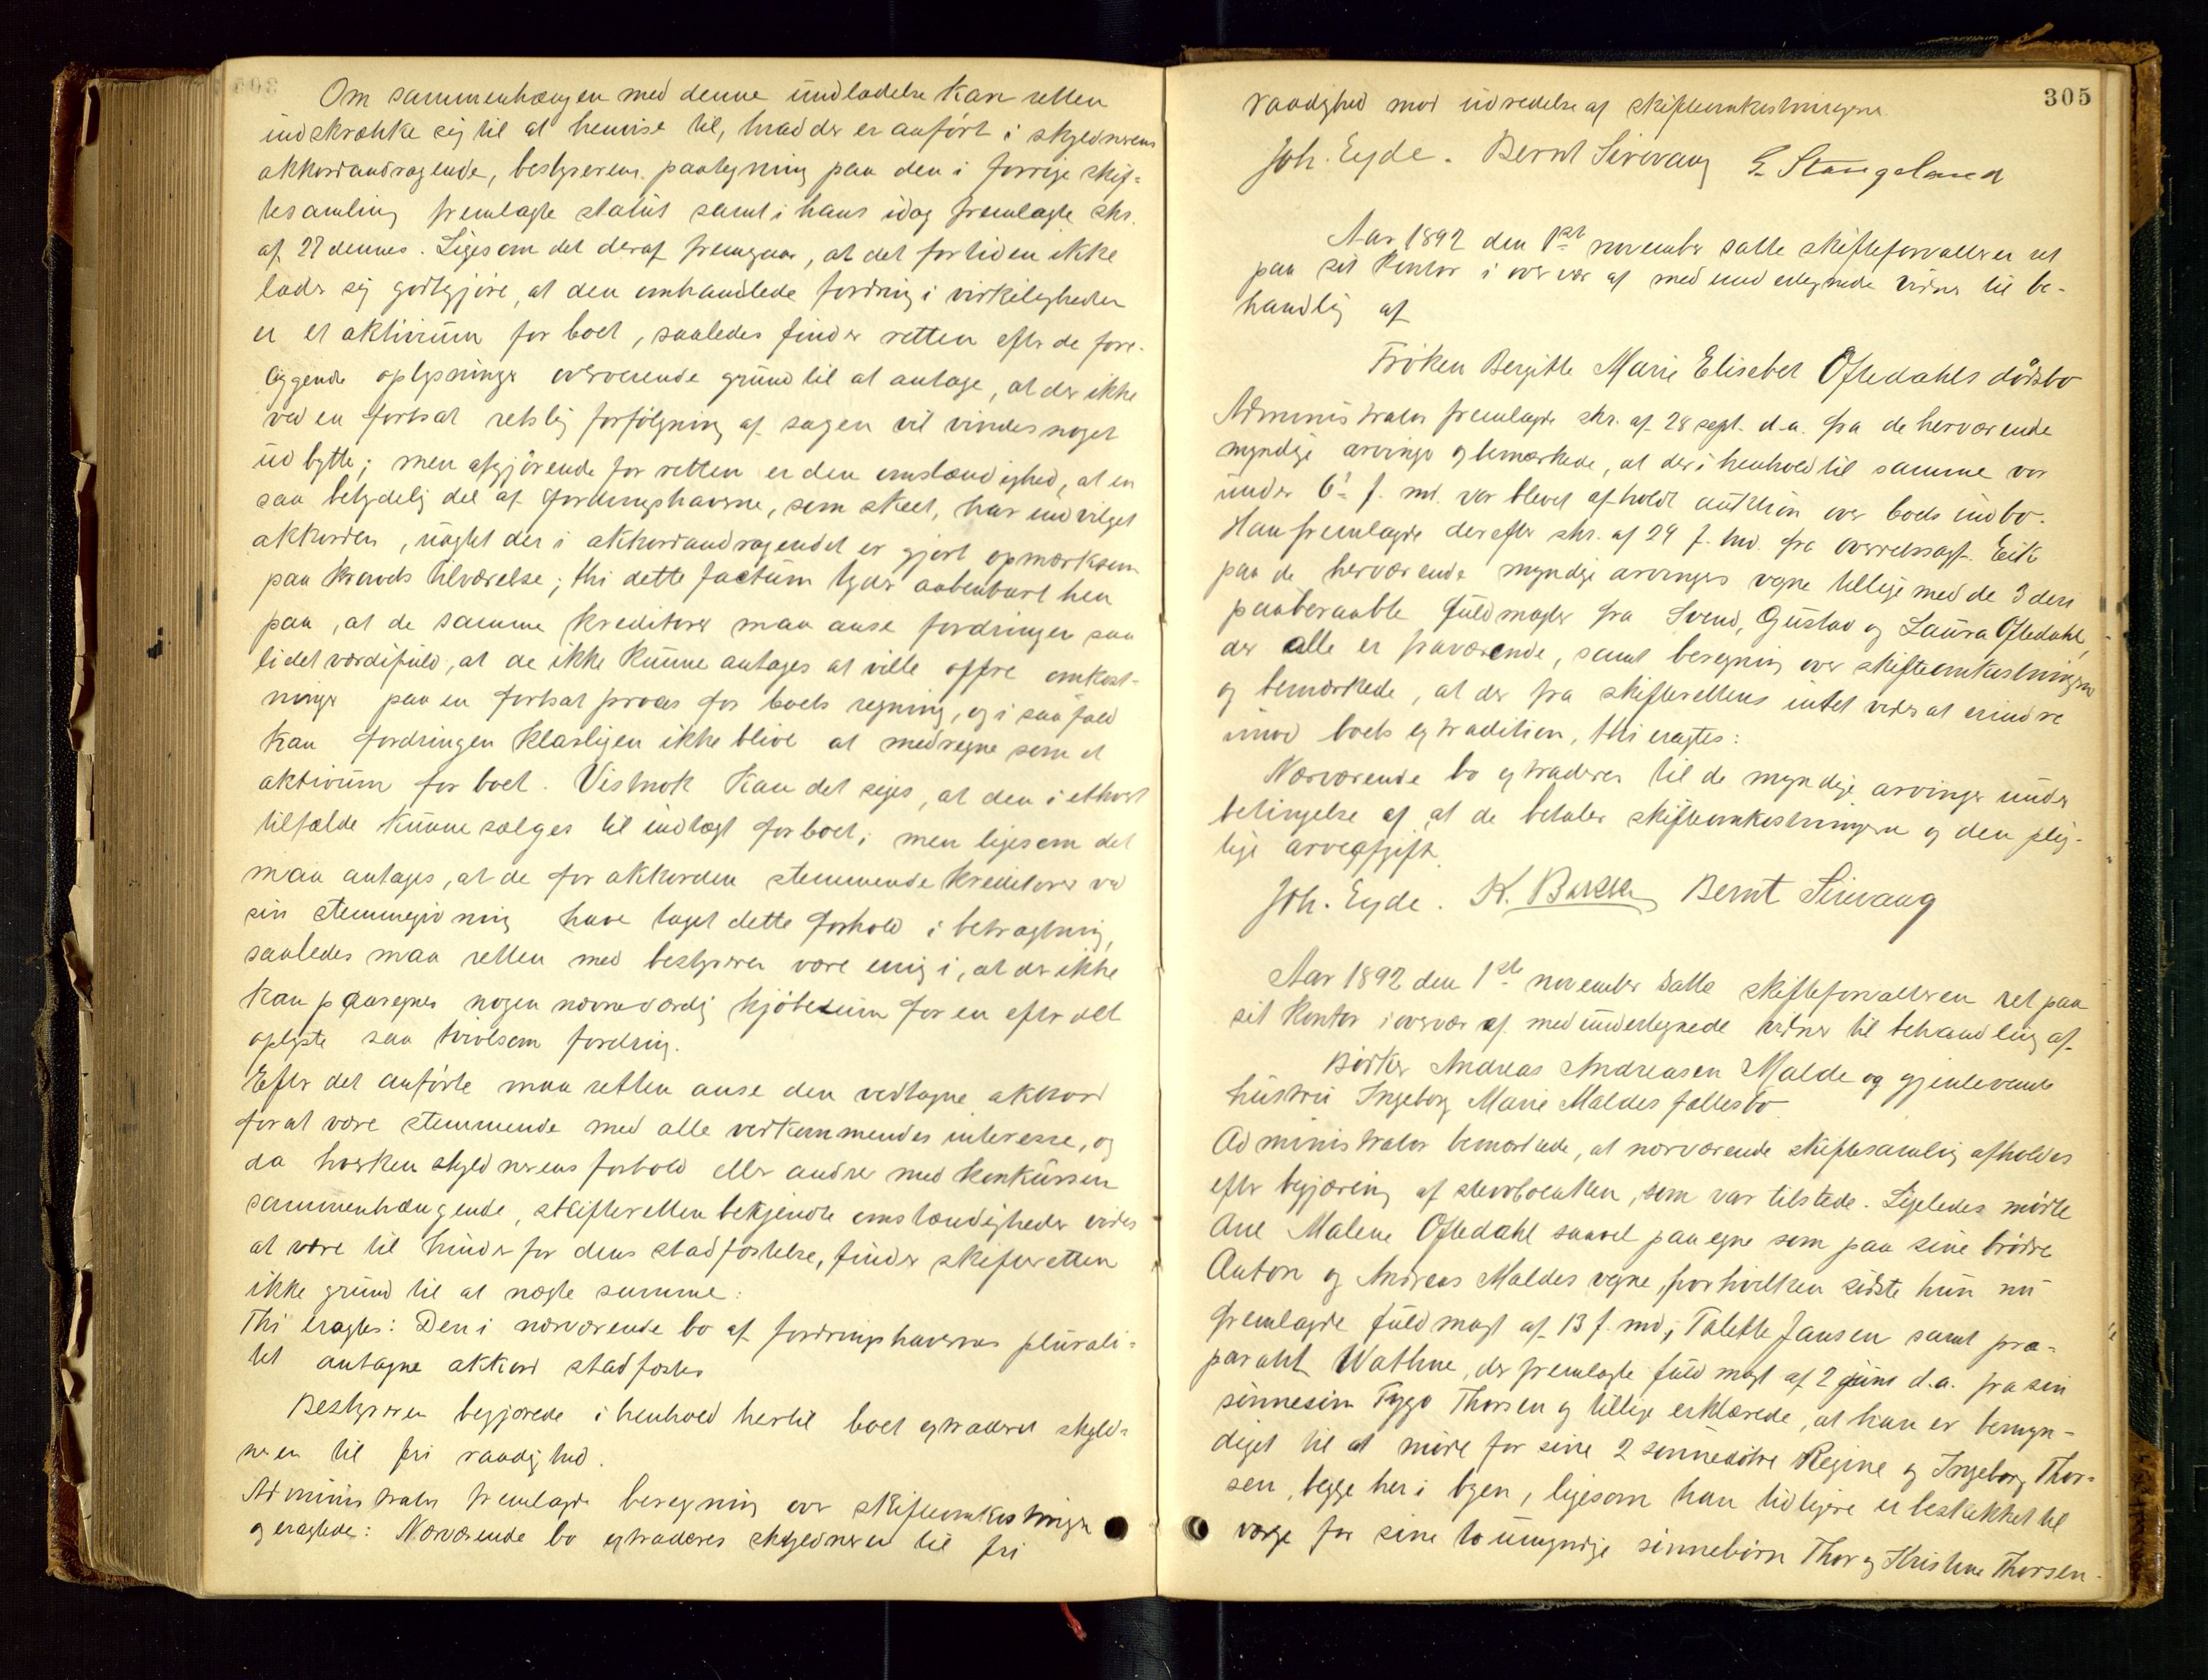 Om sammenhængen med denne undladelse kan retten
indskrænke sig til at henvise til, hvad der er anført i skyldnerens
akkordandragende, bestyrerens paategning paa den i forrige skif-
tesamling fremlagte status samt i hans idag fremlagte skr.
af 27 dennes. Ligesom det deraf fremgaar, at det for tiden ikke
lader sig godtgjøre, at den omhandlede fordring i virkeligheden
er et aktivum for boet, saaledes finder retten efter de fore-
liggende oplysninger overveiende grund til at antage, at der ikke
ved en fortsat retslig forfølgning af sagen vil vindes noget
udbytte; men afgjørende for retten er den omstændighed, at en
saa betydelig del af fordringshaverne, som skeet, har indvilget
akkorden, uagtet der i akkordandragendet er gjort opmærksom
paa kravets tilværelse; thi dette factum tyder aabenbart hen
paa, at de samme kreditorer maa anse fordringen saa
lidet værdifuld, at de ikke kunne antages at ville offre omkost-
ninger paa en fortsat proces for boets regning, og i saa fald
kan fordringen klarligen ikke blive at medregne som et
aktivum for boet. Vistnok kan det siges, at den i ethvert
tilfælde kunne sælges til indtægt for boet; men ligesom det
maa antages, at de for akkorden stemmende kreditorer ved
sin stemmegivning have taget dette forhold i betragtning,
saaledes maa retten med bestyreren være enig i, at der ikke
kan paaregnes nogen nævneværdig kjøbesum for en efter det
oplyste saa tvivlsom fordring.
Efter det anførte maa retten anse den vedtagne akkord
for at være stemmende med alle vedkommendes interesse, og
da hverken skyldnerens forhold eller andre med konkursen
sammenhængende, skifteretten bekjendte omstændigheder vides
at være til hinder for dens stadfæstelse, finder skifteretten
ikke grund til at nægte samme:
Thi eragtes: Den i nærværende bo af fordringshavernes plurali-
tet antagne akkord stadfæstes
Bestyreren begjærede i henhold hertil boet extraderet skyld-
neren til fri raadighed.
Administrator fremlagde beregning over skifteomkostninger
og eragtede: Nærværende bo extraderes skyldneren til fri
305
raadighed mod udredelse af skifteomkostningerne.
Joh. Eyde. Bernt Sirevaag G Stangeland
Aar 1892 den 1ste november satte skifteforvalteren ret
paa sit kontor i overvær af medundertegnede vidner til be-
handling af
Frøken Bergitte Marie Elisebet Oftedahls dødsbo
Administrator fremlagde skr. af 28 sept. d.a. fra de herværende
myndige arvinger og bemærkede, at der i henhold til samme var
under 6te f. md. var blevet afholdt auktion over boets indbo.
Han fremlagde derefter skr. af 29 f. md. fra overretssagf. Eik
paa de herværende myndige arvingers vegne tillige med de 3 deri
paaberaabte fuldmagter fra Svend, Gustav og Laura Oftedahl,
der alle er fraværende, samt beregning over skifteomkostningerne
og bemærkede, at der fra skifterettens intet vides at erindre
imod boets extradition, thi eragtes:
Nærværende bo extraderes til de myndige arvinger under
betingelse af at de betaler skifteomkostningerne og den plig-
tige arveafgift.
Joh. Eyde. K. Bakke Bernt Sirevaag
Aar 1892 den 1ste november satte skifteforvalteren ret paa
sit kontor i overvær af medundertegnede vidner til behandling af
Bødker Andreas Andreasen Malde og gjenlevende
hustru Ingeborg Marie Maldes fællesbo.
Administrator bemærkede, at nærværende skiftesamling afholdes
efter begjæring af stervboenken, som var tilstede. Ligeledes mødte
Ane Malene Oftedahl saavel paa egne som paa sine brødre
Anton og Andreas Maldes vegne, for hvilken sidste hun nu
fremlagde fuldmagt af 13 f. md., Talette Jansen samt præ-
parant Wathne, der fremlagte fuldmagt af 2 juni d.a. fra sin
svinnesøn Tygo Thorsen og tillige erklærede, at han er bemyn-
diget til at møde for sine 2 Regine og Ingeborg Thor-
sen, begge her i byen, ligesom han tidligere er beskikket til
værge for sine to umyndige Thor og Kristine Thorsen.